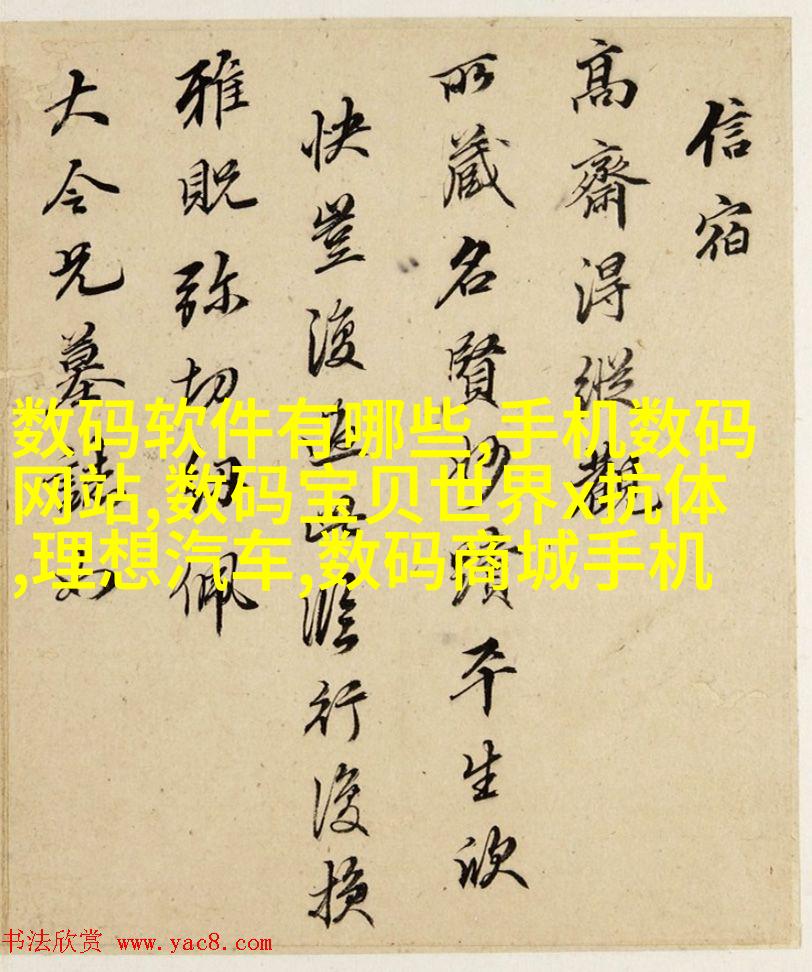 信宿
高齋得縱觀
所藏名賢妙蹟平生欣
快豈復過此臨行復損
雅貺弥切紉佩
大令兄墓誌
数码软件有哪些,手机数码
网站,数码宝贝世界x抗体
,理想汽车,数码商城手机
书法欣赏 www.yac8.com